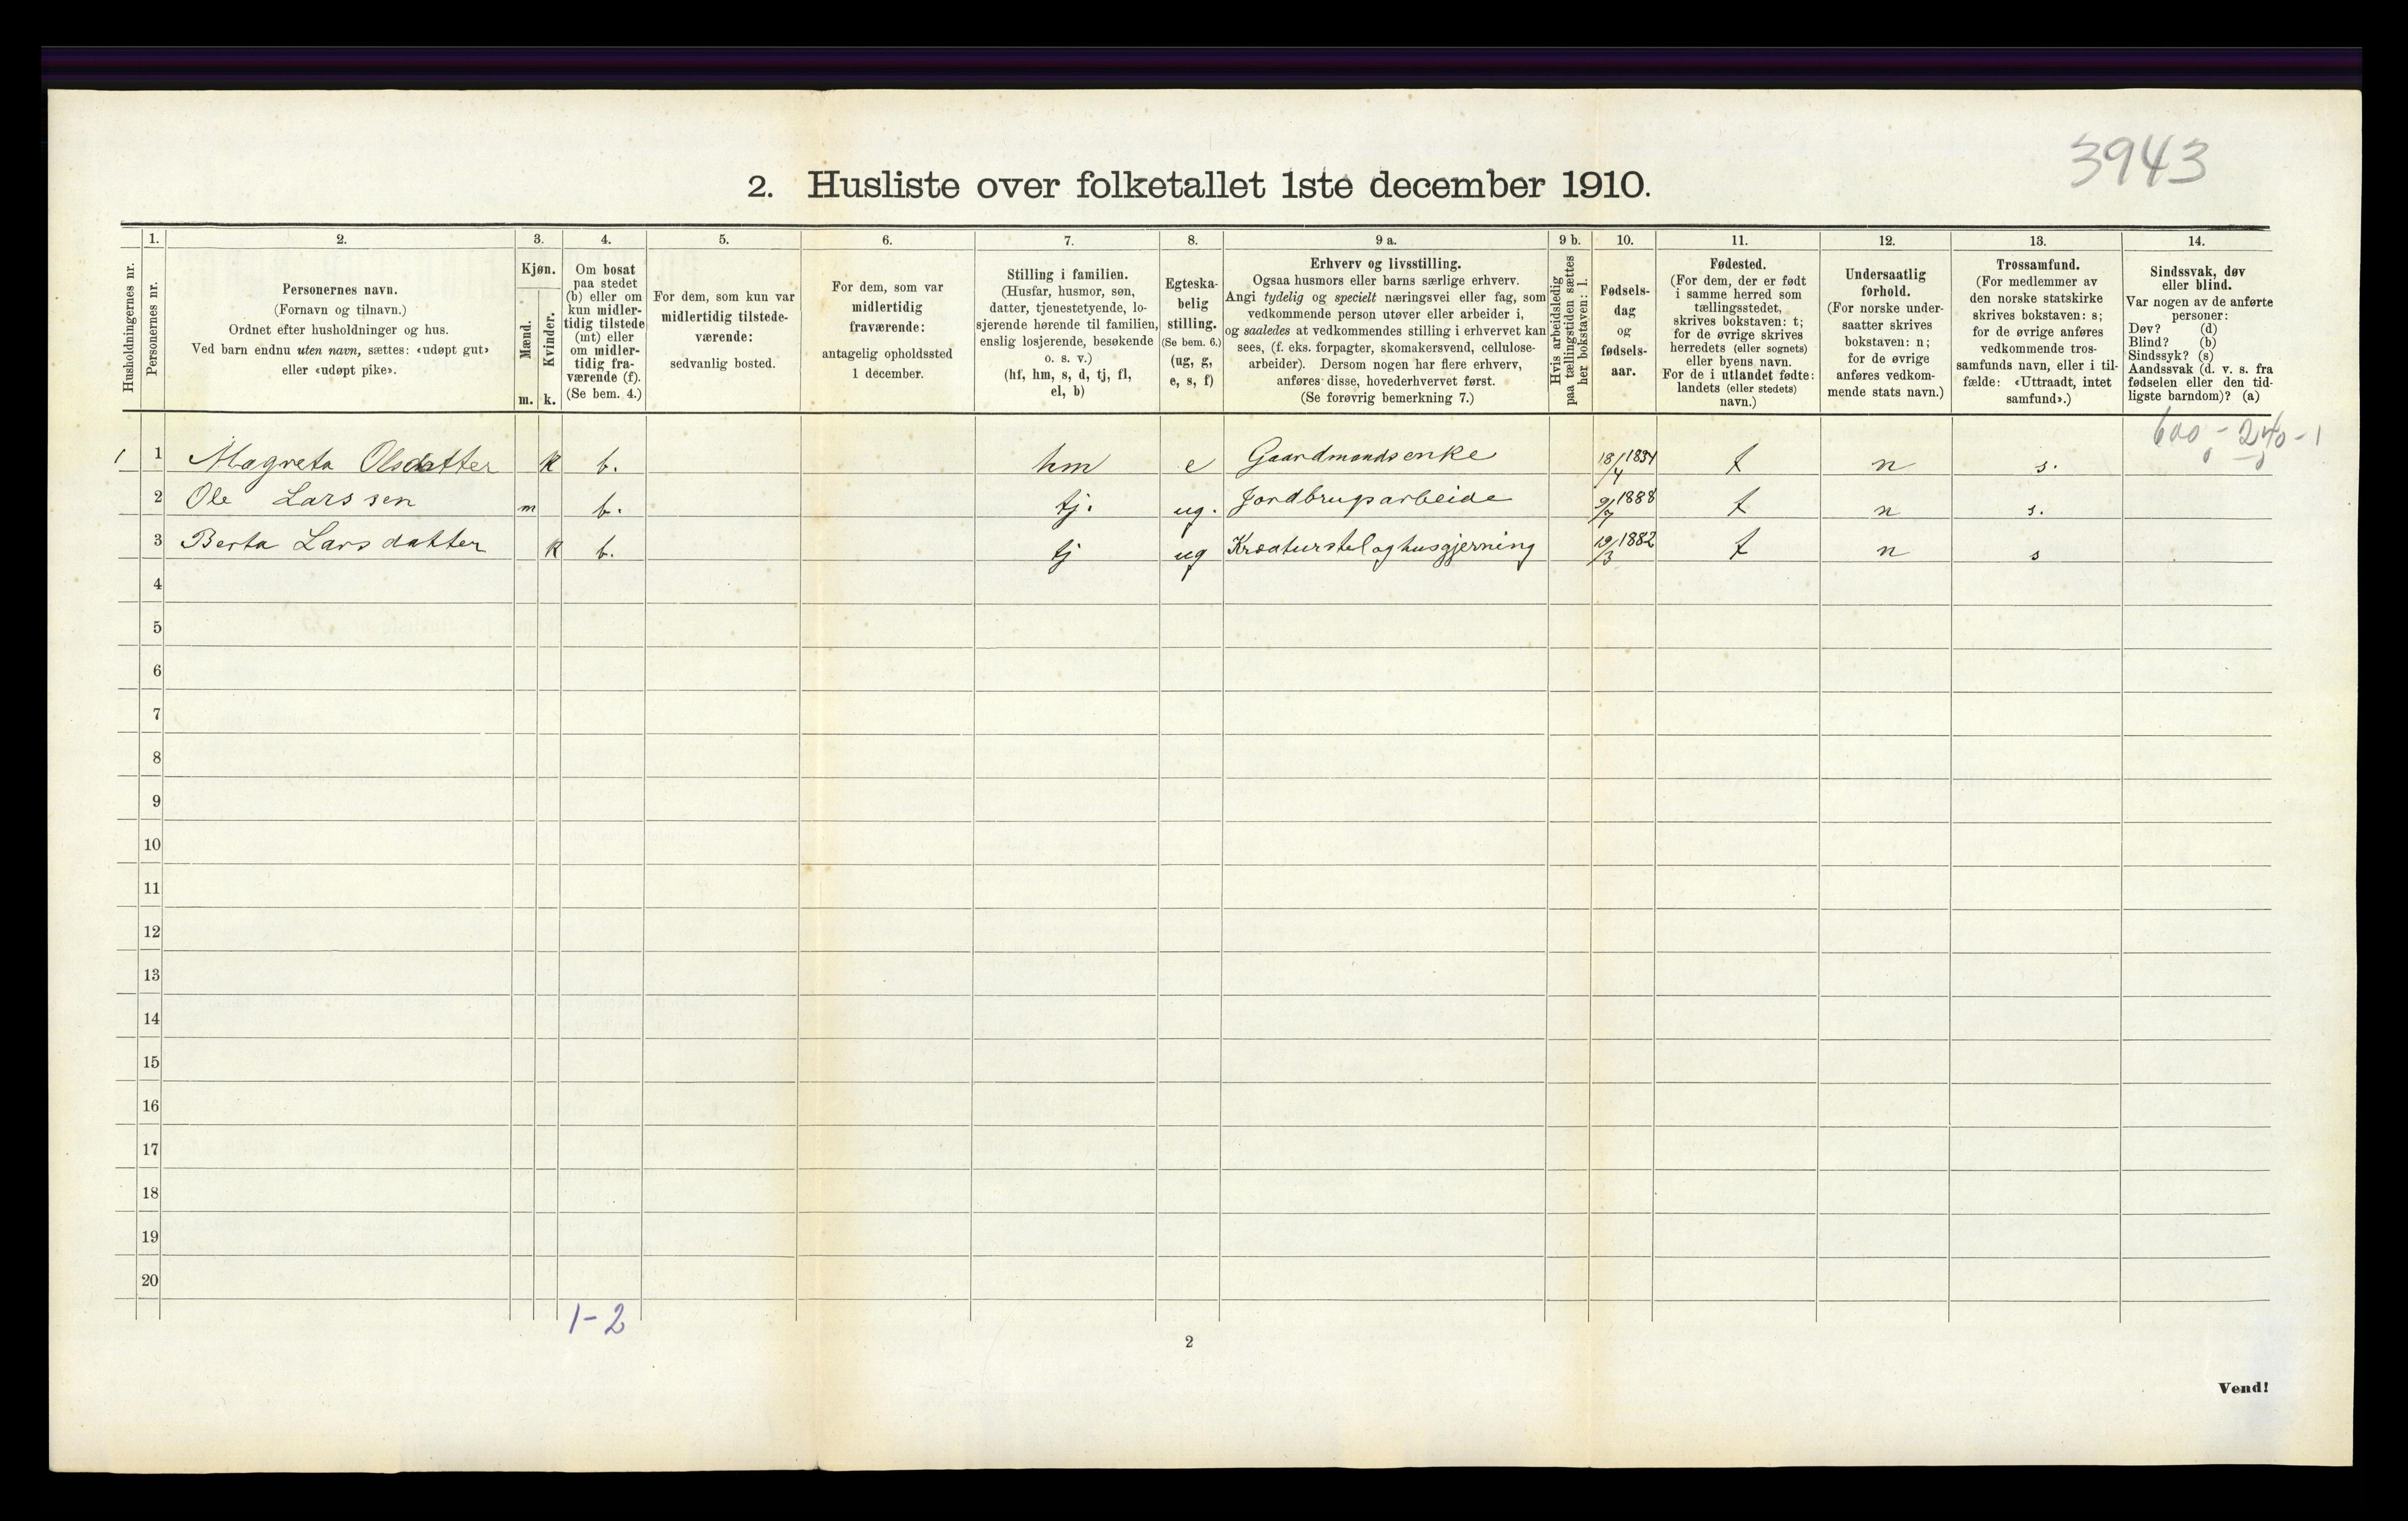 3943
2. Husliste over folketallet 1ste december 1910.
Husholdningernes nr.
1.
Personernes nr.
2.
Personernes navn.
(Fornavn og tilnavn.)
Ordnet efter husholdninger og hus.
Ved barn endnu uten navn, sættes: «udøpt gut»
eller «udøpt pike».
3.
Kjøn.
Mænd.
Kvinder.
m. k.
4.
Om bosat
paa stedet
(b) eller om
kun midler-
tidig tilstede
(mt) eller
om midler-
tidig fra-
værende (f).
(Se bem. 4.)
5.
For dem, som kun var
midlertidig tilstede-
værende:
sedvanlig bosted.
6.
For dem, som var
midlertidig
fraværende:
antagelig opholdssted
1 december.
7.
Stilling i familien.
(Husfar, husmor, søn,
datter, tjenestetyende, lo-
sjerende hørende til familien,
enslig losjerende, besøkende
o. s. v.)
(hf, hm, s, d, tj, fl,
el, b)
8.
Egteska-
belig
stilling.
(Se bem. 6.)
(ug, g,
e, s, f)
9 a.
Erhverv og livsstilling.
Ogsaa husmors eller barns særlige erhverv.
Angi tydelig og specielt næringsvei eller fag, som
vedkommende person utøver eller arbeider i,
og saaledes at vedkommendes stilling i erhvervet kan
sees, (f. eks. forpagter, skomakersvend, cellulose-
arbeider). Dersom nogen har flere erhverv,
anføres disse, hovederhvervet først.
(Se forøvrig bemerkning 7.)
9 b.
Hvis arbeidsledig
paa tællingstiden sættes
her bokstaven: l.
10.
Fødsels-
dag
og
fødsels-
aar.
11.
Fødested.
(For dem, der er født
i samme herred som
tællingsstedet,
skrives bokstaven: t;
for de øvrige skrives
herredets (eller sognets)
eller byens navn.
For de i utlandet fødte:
landets (eller stedets)
navn.)
12.
Undersaatlig
forhold.
(For norske under-
saatter skrives
bokstaven: n;
for de øvrige
anføres vedkom-
mende stats navn.)
13.
Trossamfund.
(For medlemmer av
den norske statskirke
skrives bokstaven: s;
for de øvrige anføres
vedkommende tros-
samfunds navn, eller i til-
fælde: «Uttraadt, intet
samfund».)
14.
Sindssvak, døv
eller blind.
Var nogen av de anførte
personer:
Døv? (d)
Blind? (b)
Sindssyk? (s)
Aandssvak (d. v. s. fra
fødselen eller den tid-
ligste barndom)? (a)
600 - 240 - 1
1 1 Magreta Olsdatter k b. hm e Gaardmandsenke 18/4 1834 t n s.
2 Ole Larssen m b. tj. ug. Jordbrugsarbeide 9/7 1888 t n s.
3 Berta Larsdatter k b. tj ug Kreaturstel og husgjerning 19/3 1882 t n s
4
5
6
7
8
9
10
11
12
13
14
15
16
17
18
19
20
1-2
2
Vend!